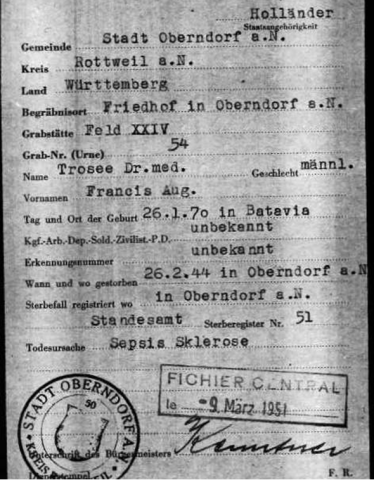 Holländer
Staatsangehörigkeit
Gemeinde Stadt Oberndorf a.N.
Kreis Rottweil a.N.
Land Württemberg
Begräbnisort Friedhof in Oberndorf a.N.
Grabstätte Feld XXIV
Grab-Nr. (Urne) 54
Name Trosee Dr.med. Geschlecht männl.
Vornamen Francis Aug.
Tag und Ort der Geburt 26.1.70 in Batavia
unbekannt
Kgf.-Arb.-Dep.-Sold.-Zivilist.-P.D.
unbekannt
Erkennungsnummer
26.2.44 in Oberndorf a.N
Wann und wo gestorben
in Oberndorf a.N.
Sterbefall registriert wo
Standesamt Sterberegister Nr. 51
Todesursache Sepsis Sklerose
FICHIER CENTRAL
le - 9. März 1951
STADT OBERNDORF A.N.
50
KREIS
Unterschrift des Bürgermeisters
Dienststempel
F. R.